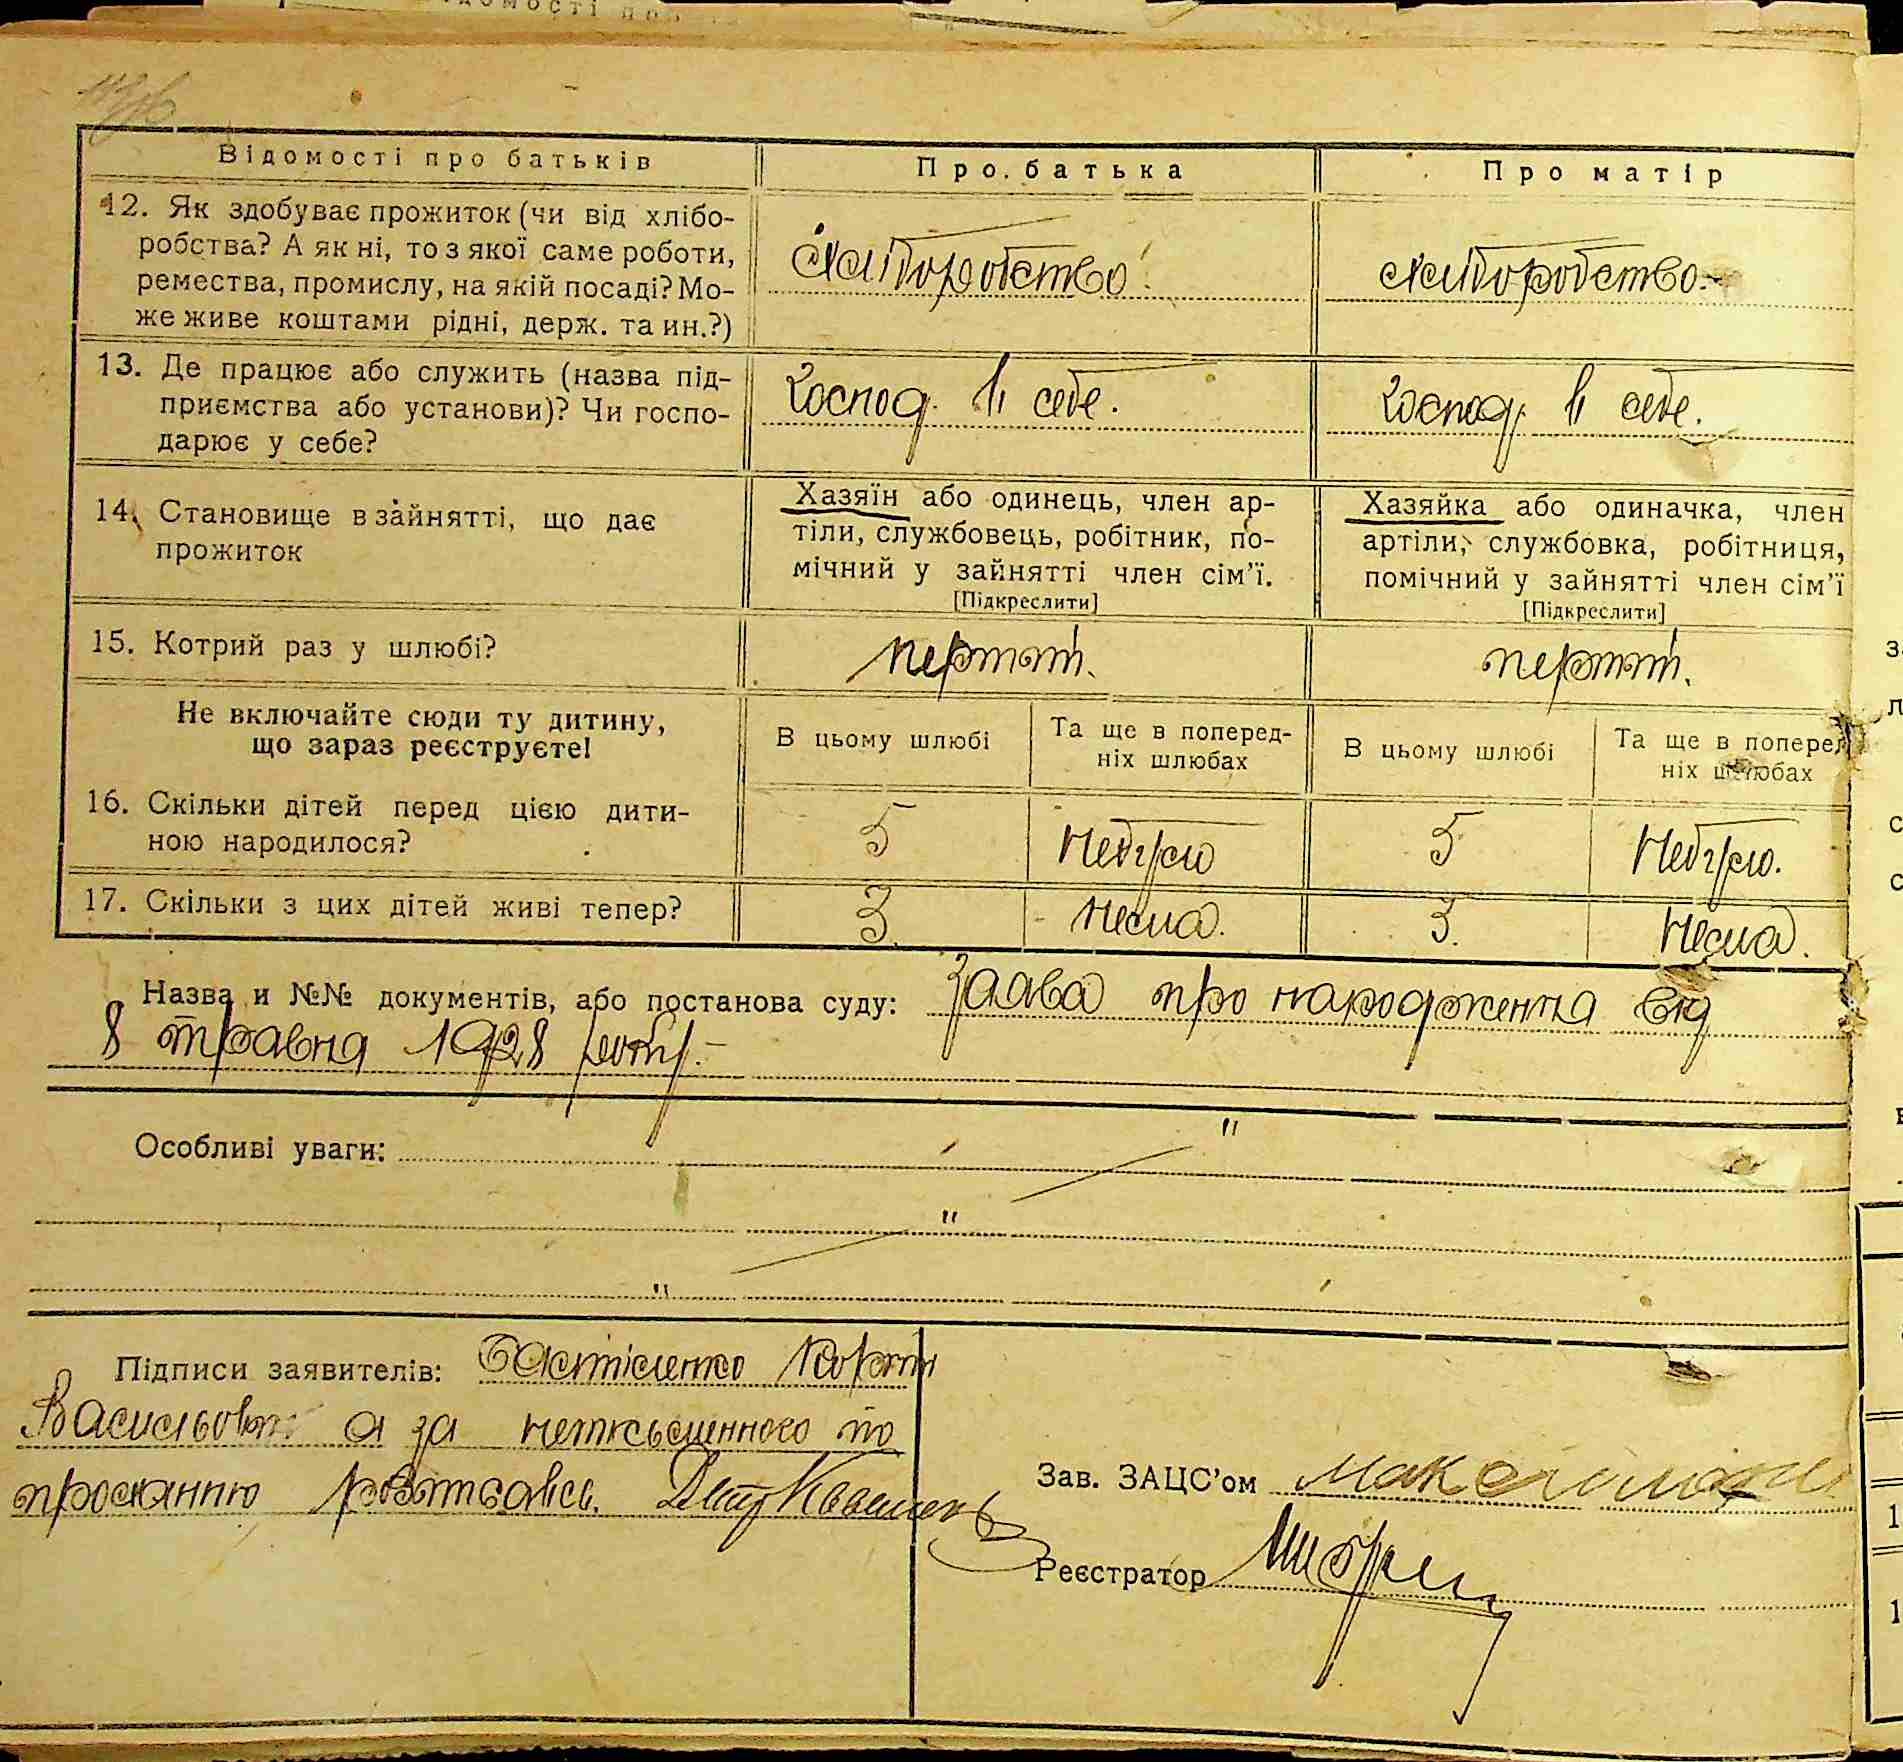 Відомості про батьків
Про батька
Про матір
12. Як здобуває прожиток (чи від хлібо-
робства? А як ні, то з якої саме роботи,
ремества, промислу, на якій посаді? Мо-
же живе коштами рідні, держ. та ин.?)
Хліборобство.
Хліборобство.-
13. Де працює або служить (назва під-
приємства або установи)? Чи госпо-
дарює у себе?
Господ. в себе.
Господ. в себе.
14. Становище в зайнятті, що дає
прожиток
Хазяїн або одинець, член ар-
тіли, службовець, робітник, по-
мічний у зайнятті член сім'ї.
[Підкреслити]
Хазяйка або одиначка, член
артіли, службовка, робітниця,
помічний у зайнятті член сім'ї
[Підкреслити]
15. Котрий раз у шлюбі?
перший.
перший.
Не включайте сюди ту дитину,
що зараз реєструєте!
В цьому шлюбі
Та ще в поперед-
ніх шлюбах
В цьому шлюбі
Та ще в поперед
ніх шлюбах
16. Скільки дітей перед цією дити-
ною народилося?
5
Небуло
5
Небуло.
17. Скільки з цих дітей живі тепер?
3.
Нема.
3.
Нема.
Назва и №№ документів, або постанова суду: Заява про народження від
8 травня 1928 року.-
Особливі уваги:
Підписи заявителів:
Васильович а за неписьменного по
проханню розписавсь.
Зав. ЗАЦС'ом
Реєстратор